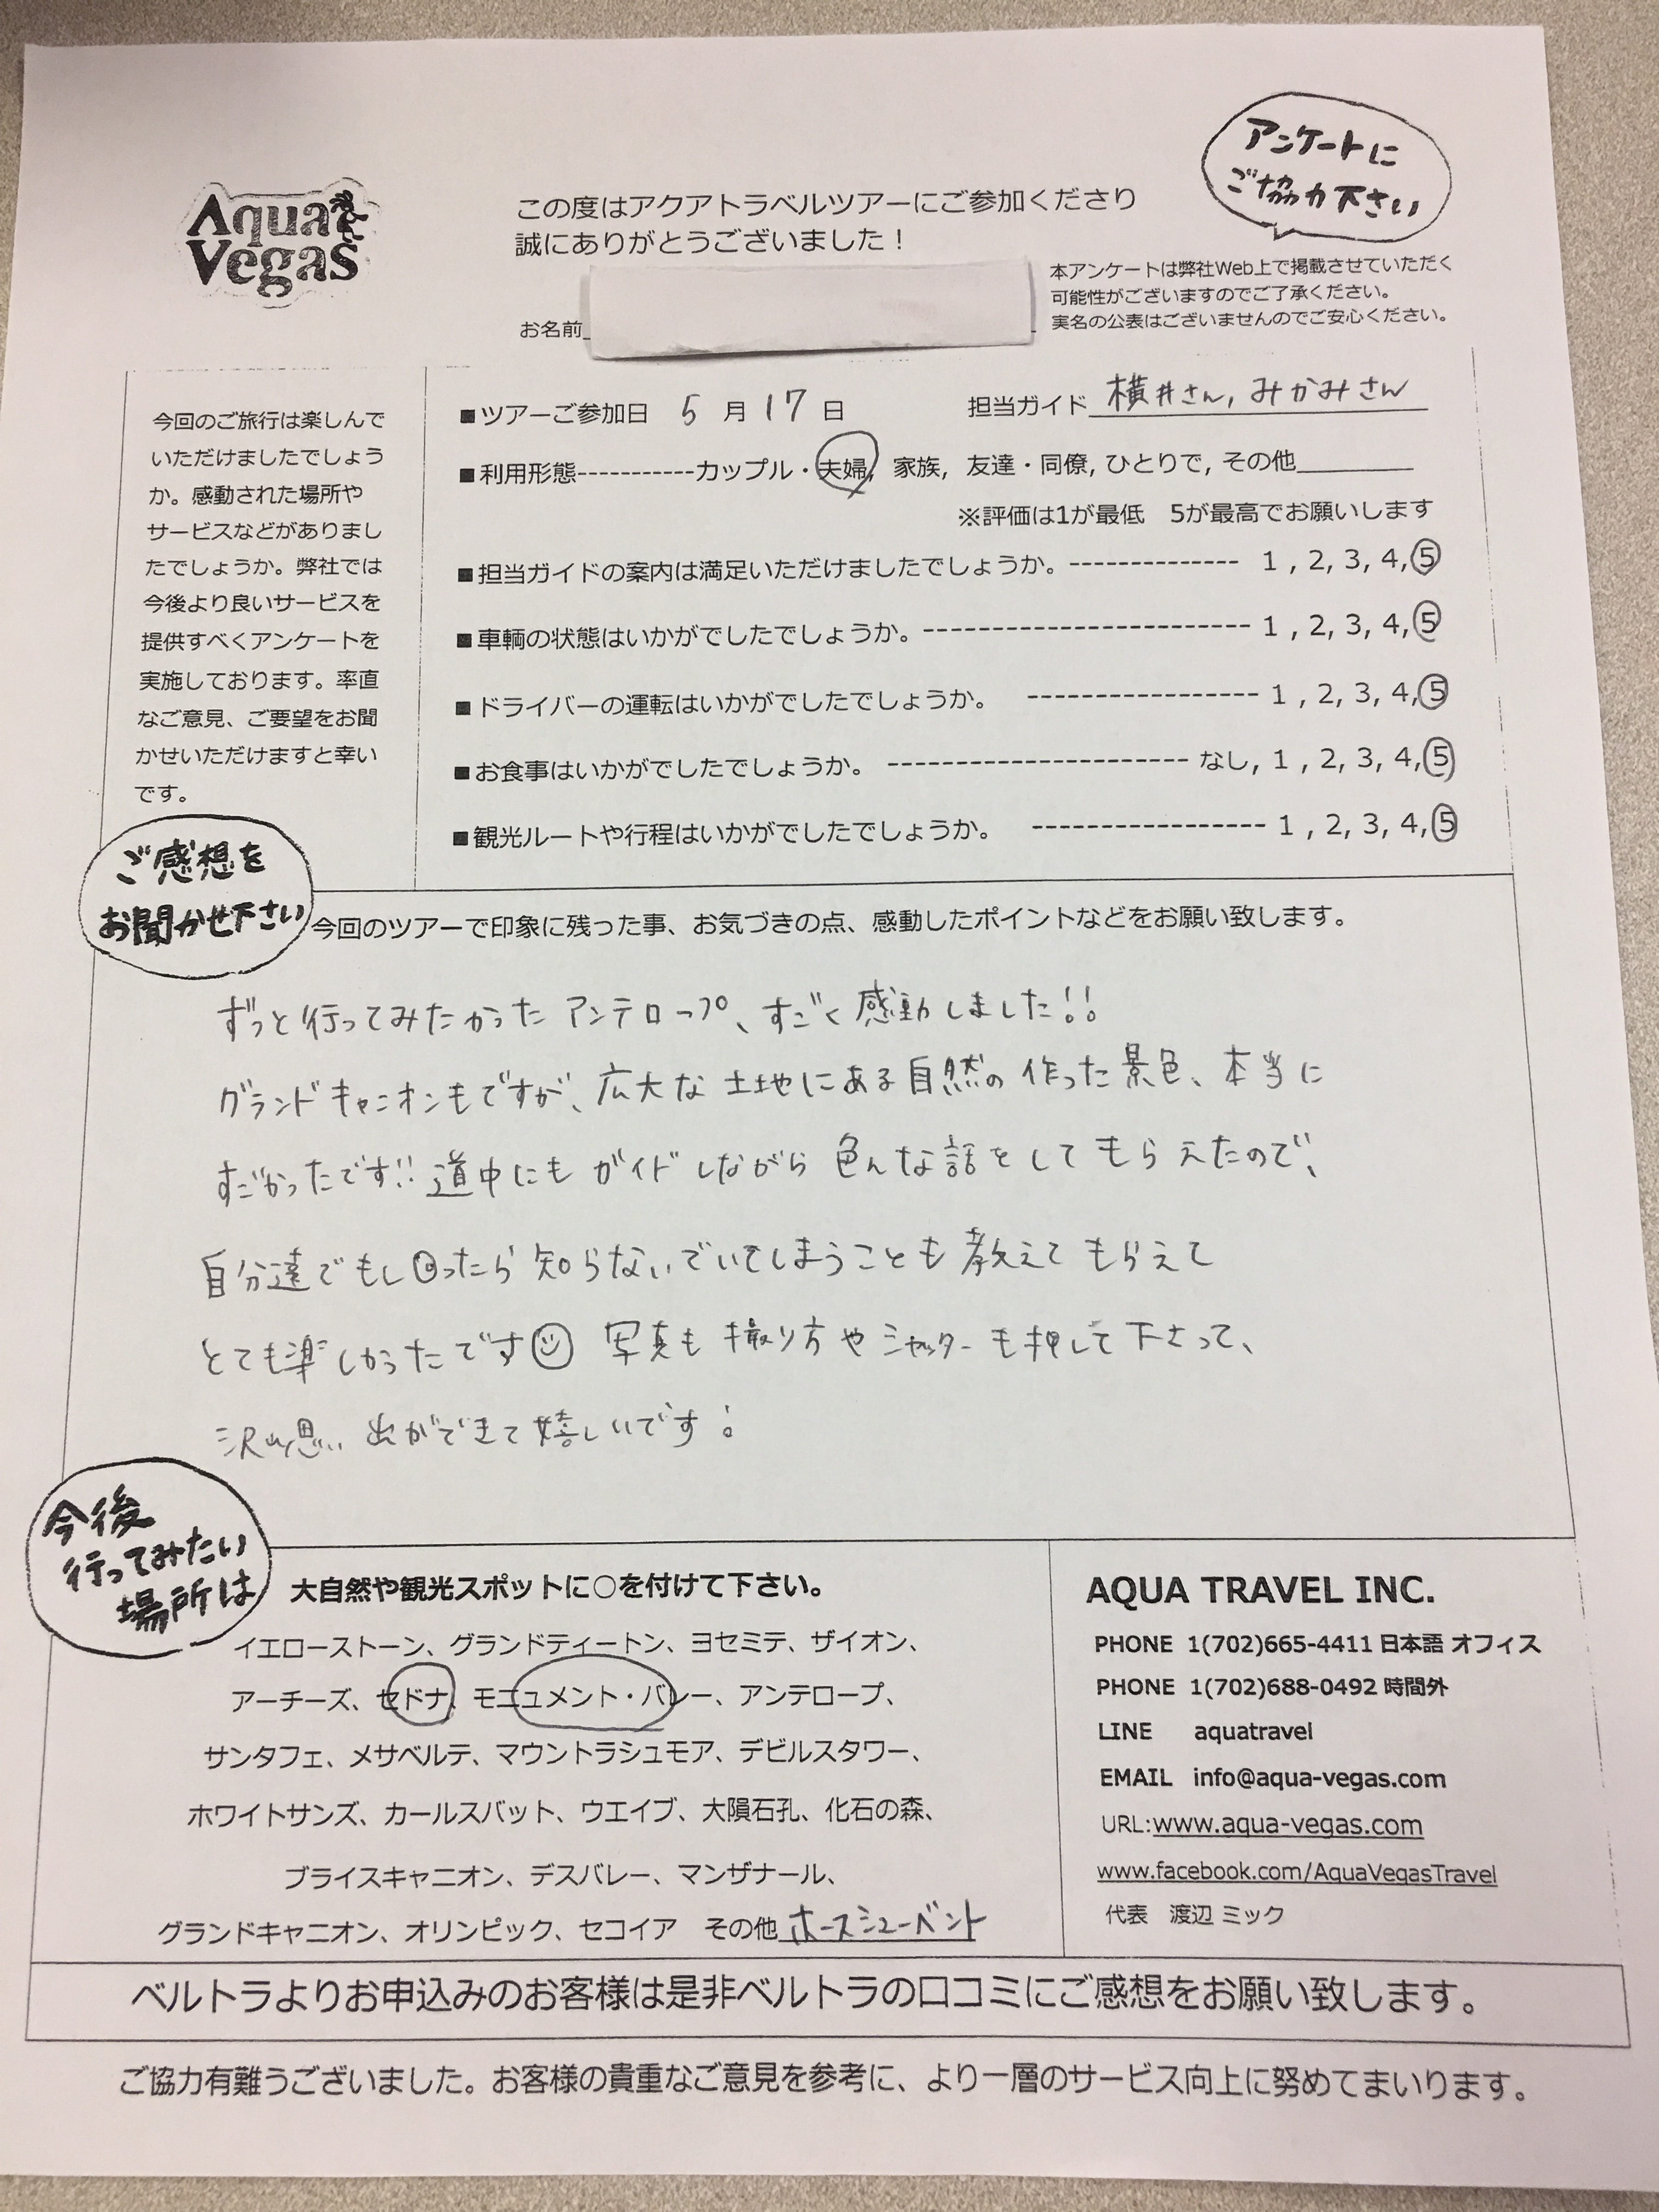 アンケートに
ご協力下さい
Aqua
Vegas
この度はアクアトラベルツアーにご参加くださり
誠にありがとうございました！
お名前
本アンケートは弊社Web上で掲載させていただく
可能性がございますのでご了承ください。
実名の公表はございませんのでご安心ください。
今回のご旅行は楽しんで
いただけましたでしょう
か。感動された場所や
サービスなどがありまし
たでしょうか。弊社では
今後より良いサービスを
提供すべくアンケートを
実施しております。率直
なご意見、ご要望をお聞
かせいただけますと幸い
です。
■ツアーご参加日 5 月 17 日 担当ガイド 横井さん, みかみさん
■利用形態-----------カップル・夫婦, 家族, 友達・同僚, ひとりで, その他
※評価は1が最低 5が最高でお願いします
■担当ガイドの案内は満足いただけましたでしょうか。------------- 1 , 2, 3, 4, 5
■車輌の状態はいかがでしたでしょうか。------------------------- 1 , 2, 3, 4, 5
■ドライバーの運転はいかがでしたでしょうか。 ----------------- 1 , 2, 3, 4, 5
■お食事はいかがでしたでしょうか。 ----------------------- なし, 1 , 2, 3, 4, 5
■観光ルートや行程はいかがでしたでしょうか。 ----------------- 1 , 2, 3, 4, 5
ご感想を
お聞かせ下さい
今回のツアーで印象に残った事、お気づきの点、感動したポイントなどをお願い致します。
ずっと行ってみたかったアンテロープ、すごく感動しました!!
グランドキャニオンもですが、広大な土地にある自然の作った景色、本当に
すごかったです!! 道中にもガイドしながら色んな話をしてもらえたので、
自分達でもし回ったら知らないでいてしまうことも教えてもらえて
とても楽しかったです☺ 写真も撮り方やシャッターも押して下さって、
沢山思い出ができて嬉しいです
今後
行ってみたい
場所は
大自然や観光スポットに○を付けて下さい。
イエローストーン、グランドティートン、ヨセミテ、ザイオン、
アーチーズ、セドナ、モニュメント・バレー、アンテロープ、
サンタフェ、メサベルテ、マウントラシュモア、デビルスタワー、
ホワイトサンズ、カールスバット、ウエイブ、大隕石孔、化石の森、
ブライスキャニオン、デスバレー、マンザナール、
グランドキャニオン、オリンピック、セコイア その他 ホースシューベント
AQUA TRAVEL INC.
PHONE 1(702)665-4411 日本語 オフィス
PHONE 1(702)688-0492 時間外
LINE aquatravel
EMAIL info@aqua-vegas.com
URL:www.aqua-vegas.com
www.facebook.com/AquaVegasTravel
代表 渡辺 ミック
ベルトラよりお申込みのお客様は是非ベルトラの口コミにご感想をお願い致します。
ご協力有難うございました。お客様の貴重なご意見を参考に、より一層のサービス向上に努めてまいります。